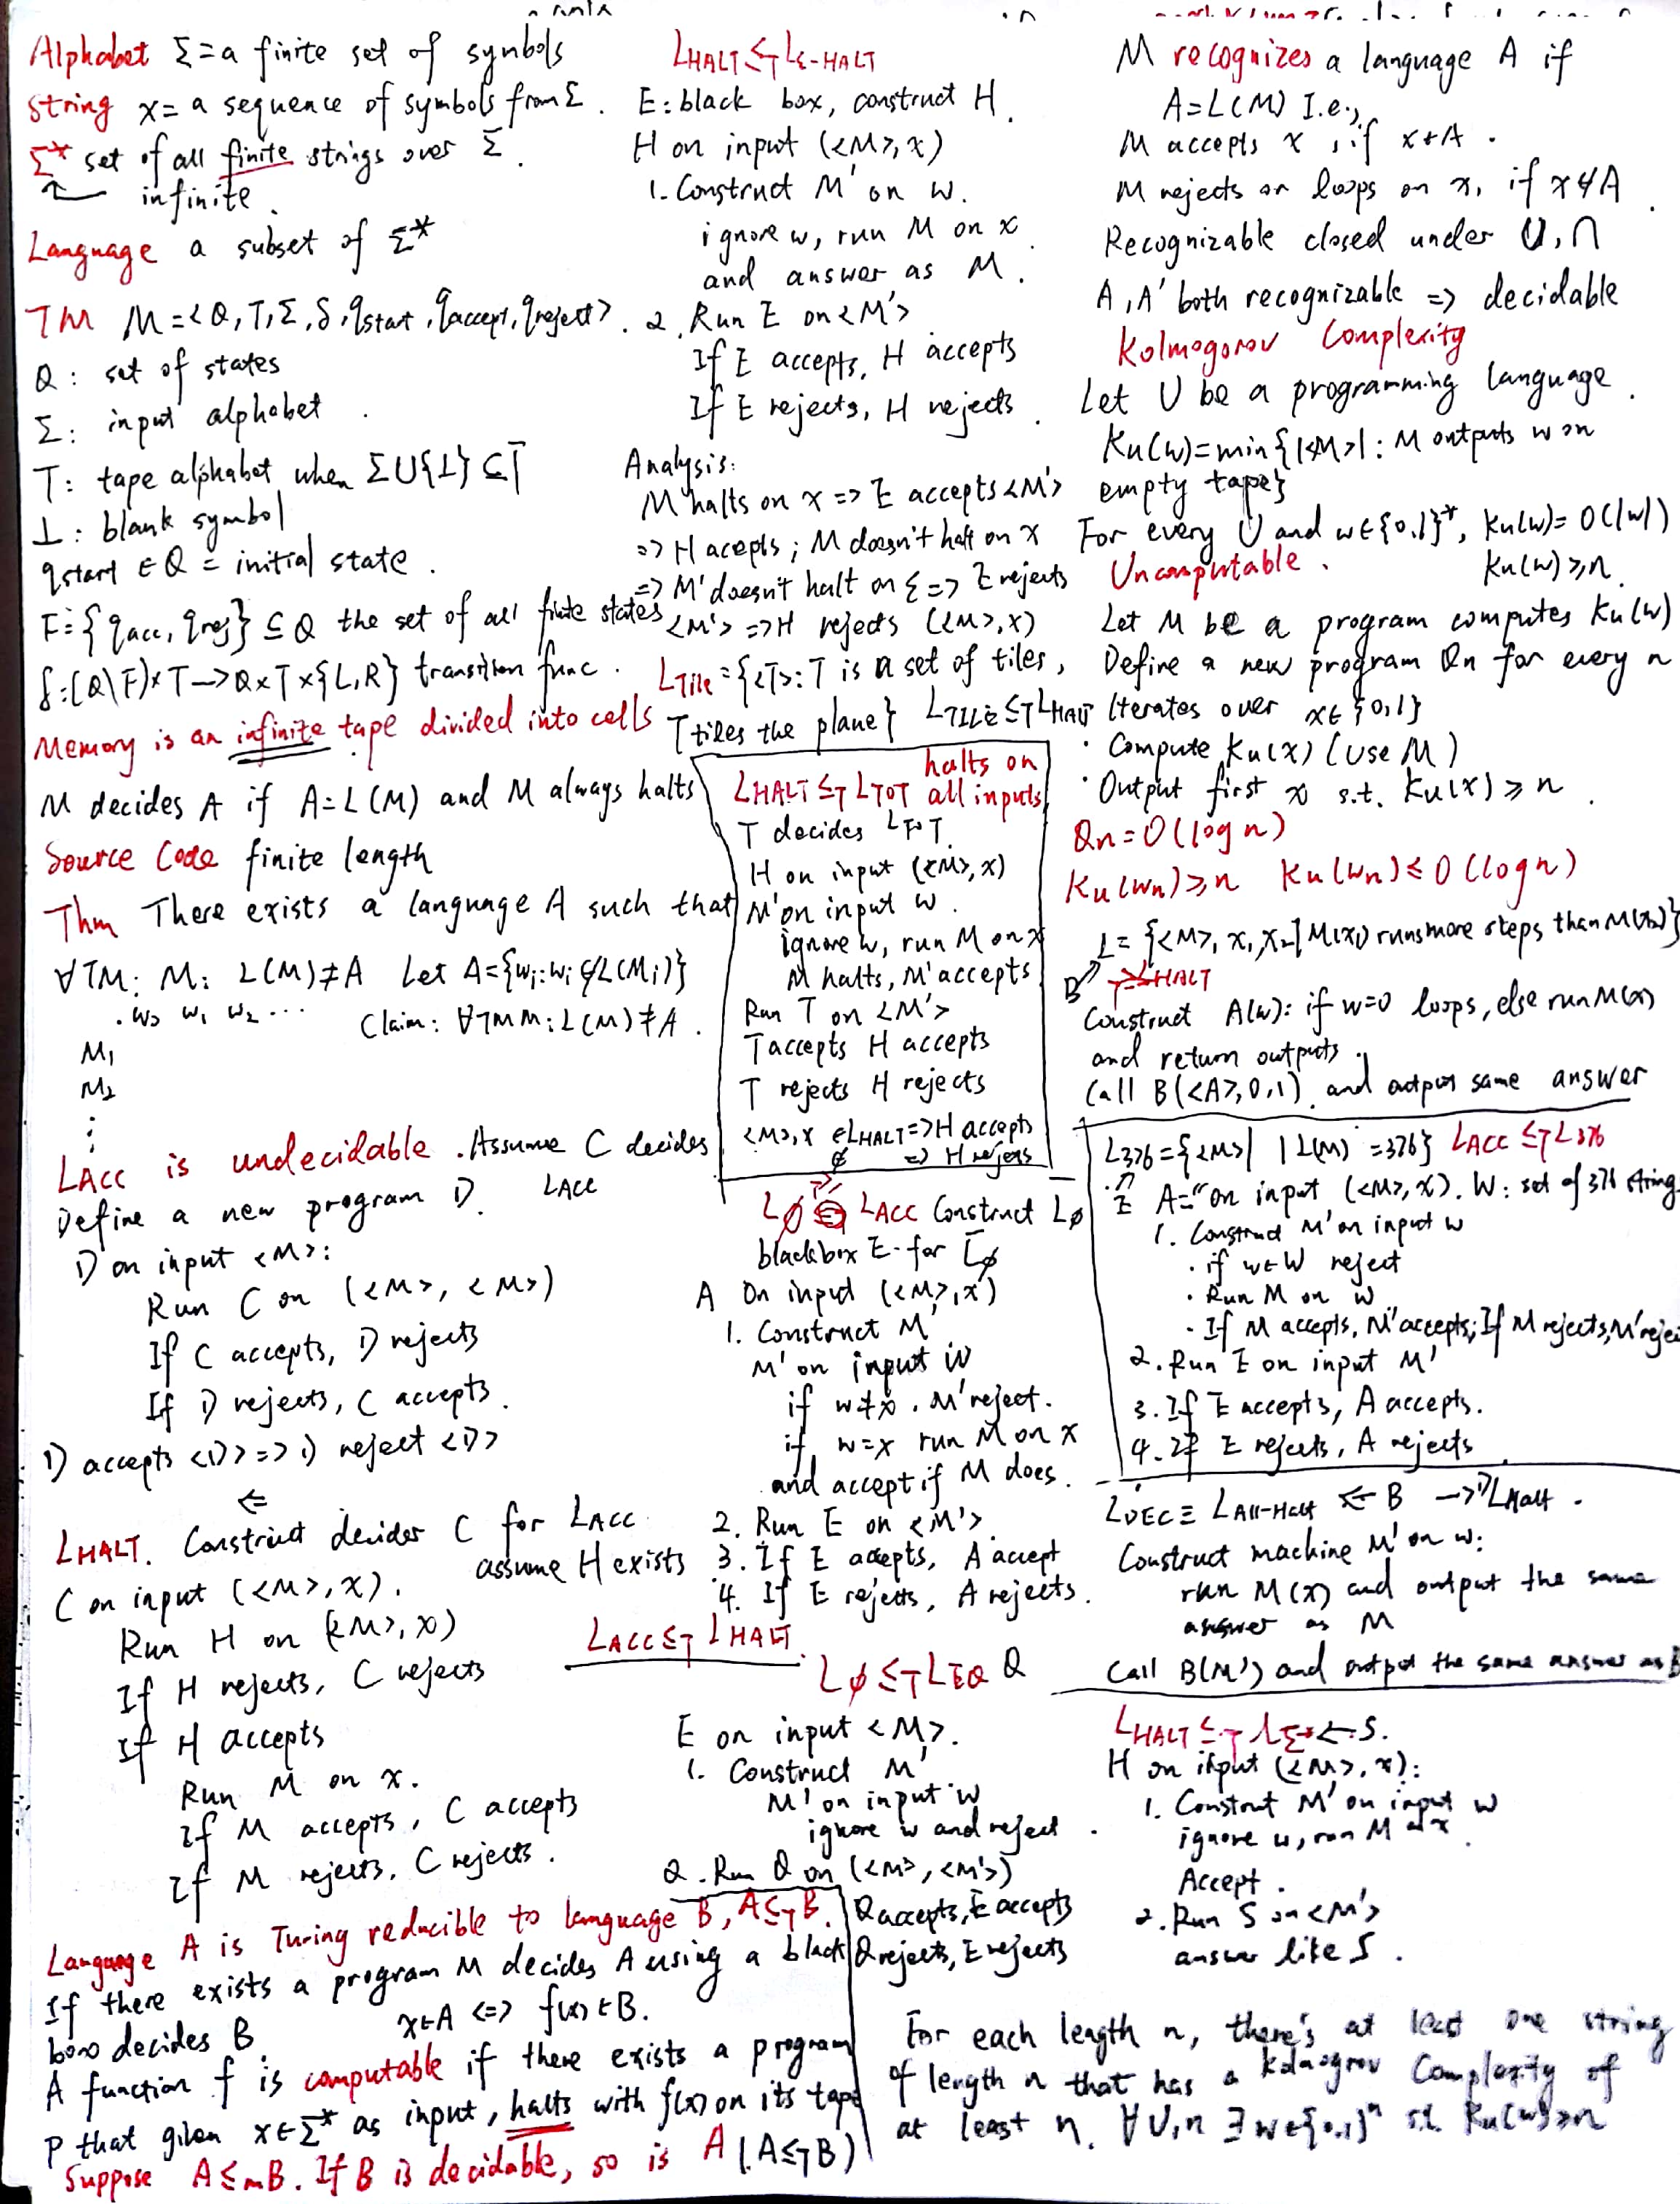 Alphabet Σ = a finite set of symbols
String x = a sequence of symbols from Σ.
Σ* set of all finite strings over Σ.
infinite.
Language a subset of Σ*
TM M = <Q, T, Σ, δ, qstart, qaccept, qreject>.
Q: set of states
Σ: input alphabet.
T: tape alphabet when Σ∪{⊥} ⊆ T
⊥: blank symbol
qstart ∈ Q = initial state.
F = {qacc, qrej} ⊆ Q the set of all finite states
δ: (Q\F)×T → Q×T×{L,R} transition func.
Memory is an infinite tape divided into cells
M decides A if A = L(M) and M always halts
Source Code finite length
Thm There exists a language A such that
∀TM: M: L(M) ≠ A Let A = {wi: wi ∉ L(Mi)}
w0 w1 w2 ... Claim: ∀TM M: L(M) ≠ A.
M1
M2
⋮
LACC is undecidable. Assume C decides
LACC
Define a new program D.
D on input <M>:
Run C on (<M>, <M>)
If C accepts, D rejects
If D rejects, C accepts.
D accepts <D> => D reject <D>
⇐
LHALT. Construct decider C for LACC
assume H exists
C on input (<M>, x).
Run H on (<M>, x)
If H rejects, C rejects
If H accepts
Run M on x.
If M accepts, C accepts
If M rejects, C rejects.
LACC ≤T LHALT
Language A is Turing reducible to language B, A ≤T B.
If there exists a program M decides A using a black
box decides B. x∈A <=> f(x)∈B.
A function f is computable if there exists a program
P that given x∈Σ* as input, halts with f(x) on its tape
Suppose A ≤m B. If B is decidable, so is A (A ≤T B)
LHALT ≤T Lε-HALT
E: black box, construct H.
H on input (<M>, x)
1. Construct M' on w.
ignore w, run M on x
and answer as M.
2. Run E on <M'>
If E accepts, H accepts
If E rejects, H rejects.
Analysis:
M halts on x => E accepts <M'>
=> H acepts; M doesn't halt on x
=> M' doesn't halt on ε => E rejects
<M'> => H rejects (<M>, x)
LTile = {<T>: T is a set of tiles,
T tiles the plane} LTILE ≤T LHALT
LHALT ≤T LTOT halts on all inputs
T decides LTOT.
H on input (<M>, x)
M' on input w.
ignore w, run M on x
M halts, M' accepts
Run T on <M'>
T accepts H accepts
T rejects H rejects
<M>, x ∈ LHALT => H accepts
∉ => H rejects
L∅ LACC Construct L∅
blackbox E for L∅
A On input (<M>, x)
1. Construct M'
M' on input w
if w≠x, M' reject.
if w=x run M on x
and accept if M does.
2. Run E on <M'>
3. If E accepts, A accept
4. If E rejects, A rejects.
L∅ ≤T LEQ Q
E on input <M>.
1. Construct M'
M' on input w
ignore w and reject.
2. Run Q on (<M>, <M'>)
Q accepts, E accepts
Q rejects, E rejects
M recognizes a language A if
A = L(M) I.e.,
M accepts x, if x∈A.
M rejects or loops on x, if x∉A.
Recognizable closed under ∪, ∩
A, A' both recognizable => decidable
Kolmogorov Complexity
Let U be a programming language.
Ku(w) = min{|<M>|: M outputs w on
empty tape}
For every U and w∈{0,1}*, Ku(w) = O(|w|)
Uncomputable. Ku(w) ≥ n.
Let M be a program computes Ku(w)
Define a new program Qn for every n
Iterates over x∈{0,1}
· Compute Ku(x) (use M)
· Output first x s.t. Ku(x) ≥ n.
Qn = O(log n)
Ku(wn) ≥ n Ku(wn) ≤ O(log n)
L = {<M>, x1, x2 | M(x1) runs more steps than M(x2)}
B T LHALT
Construct A(w): if w=0 loops, else run M(x)
and return outputs.
Call B(<A>, 0, 1) and output same answer
L376 = {<M> | |L(M)| = 376} LACC ≤T L376
E A = "on input (<M>, x). W: set of 376 string
1. Construct M' on input w
· if w∈W reject
· Run M on w
· If M accepts, M' accepts; If M rejects, M' rejec
2. Run E on input M'
3. If E accepts, A accepts.
4. If E rejects, A rejects
LDEC ≡ LAll-Halt ← B → LHalt.
Construct machine M' on w:
run M(x) and output the same
answer as M
Call B(M') and output the same answer as B
LHALT ≤T LΣ* ← S.
H on input (<M>, x):
1. Construct M' on input w
ignore w, run M on x.
Accept.
2. Run S on <M'>
answer like S.
For each length n, there's at least one string
of length n that has a kolmogrov Complexity of
at least n. ∀U, n ∃w∈{0,1}ⁿ s.t. Ku(w) ≥ n